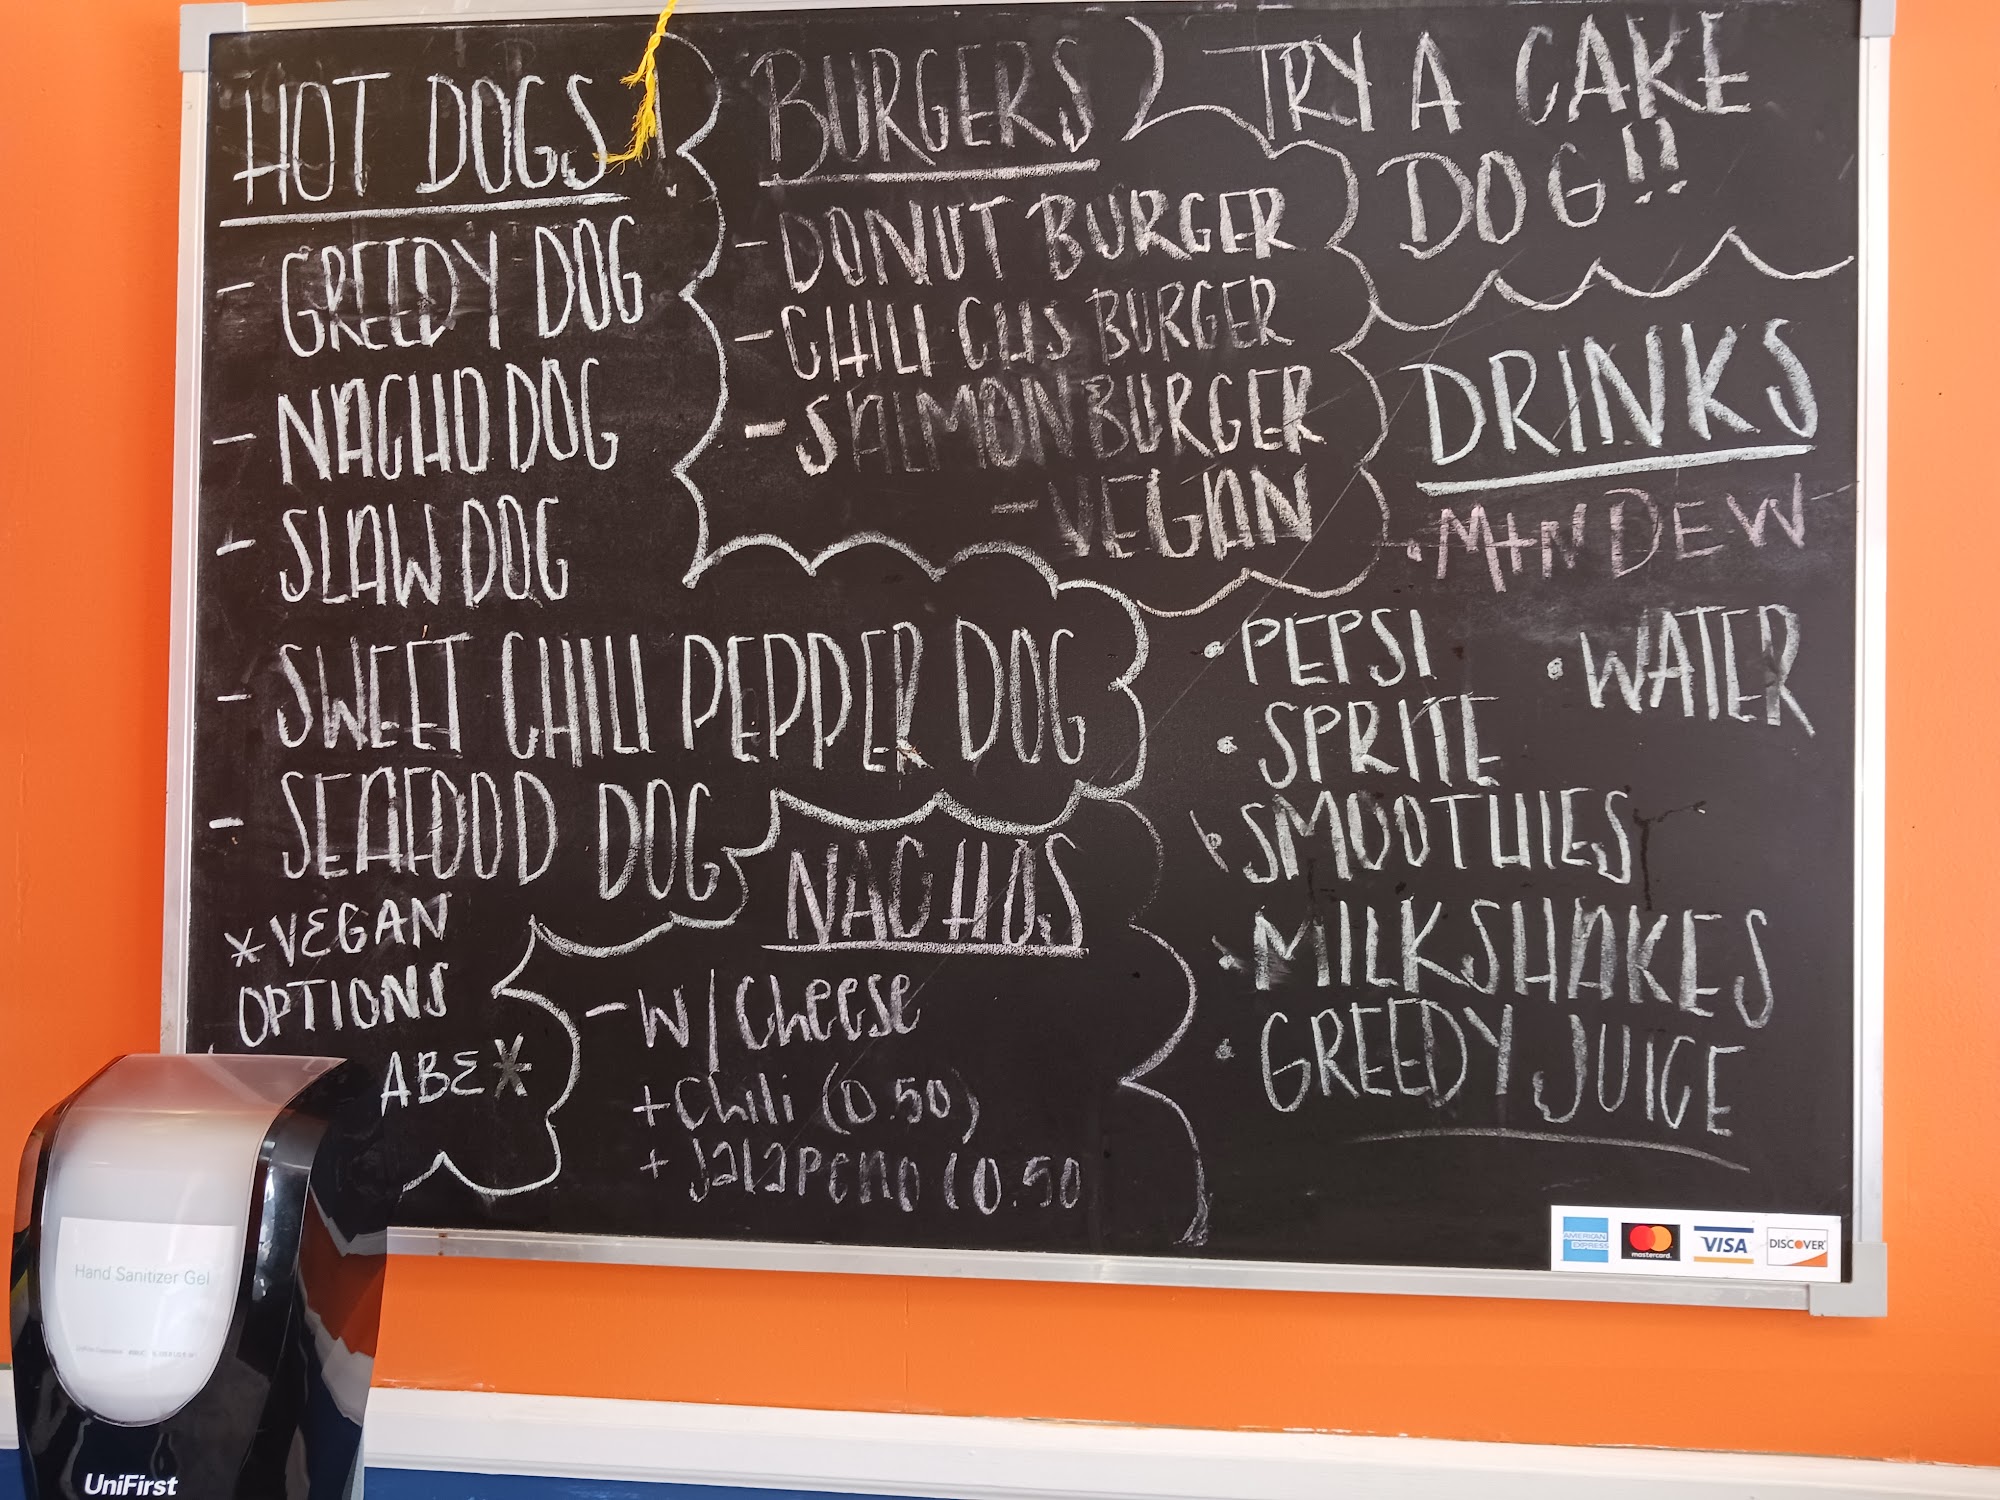 HOT DOGS
- GREEDY DOG
- NACHO DOG
- SLAW DOG
- SWEET CHILI PEPPER DOG
- SEAFOOD DOG
*VEGAN
OPTIONS
ABE*
BURGERS
- DONUT BURGER
- CHILI CHS BURGER
- SALMON BURGER
- VEGAN
NACHOS
- W/Cheese
+ Chili (0.50)
+ Jalapeno (0.50
TRY A CAKE
DOG!!
DRINKS
• MTN DEW
• PEPSI
• WATER
• SPRITE
• SMOOTHIES
• MILKSHAKES
• GREEDY JUICE
AMERICAN
EXPRESS
mastercard.
VISA
DISCOVER
Hand Sanitizer Gel
UniFirst